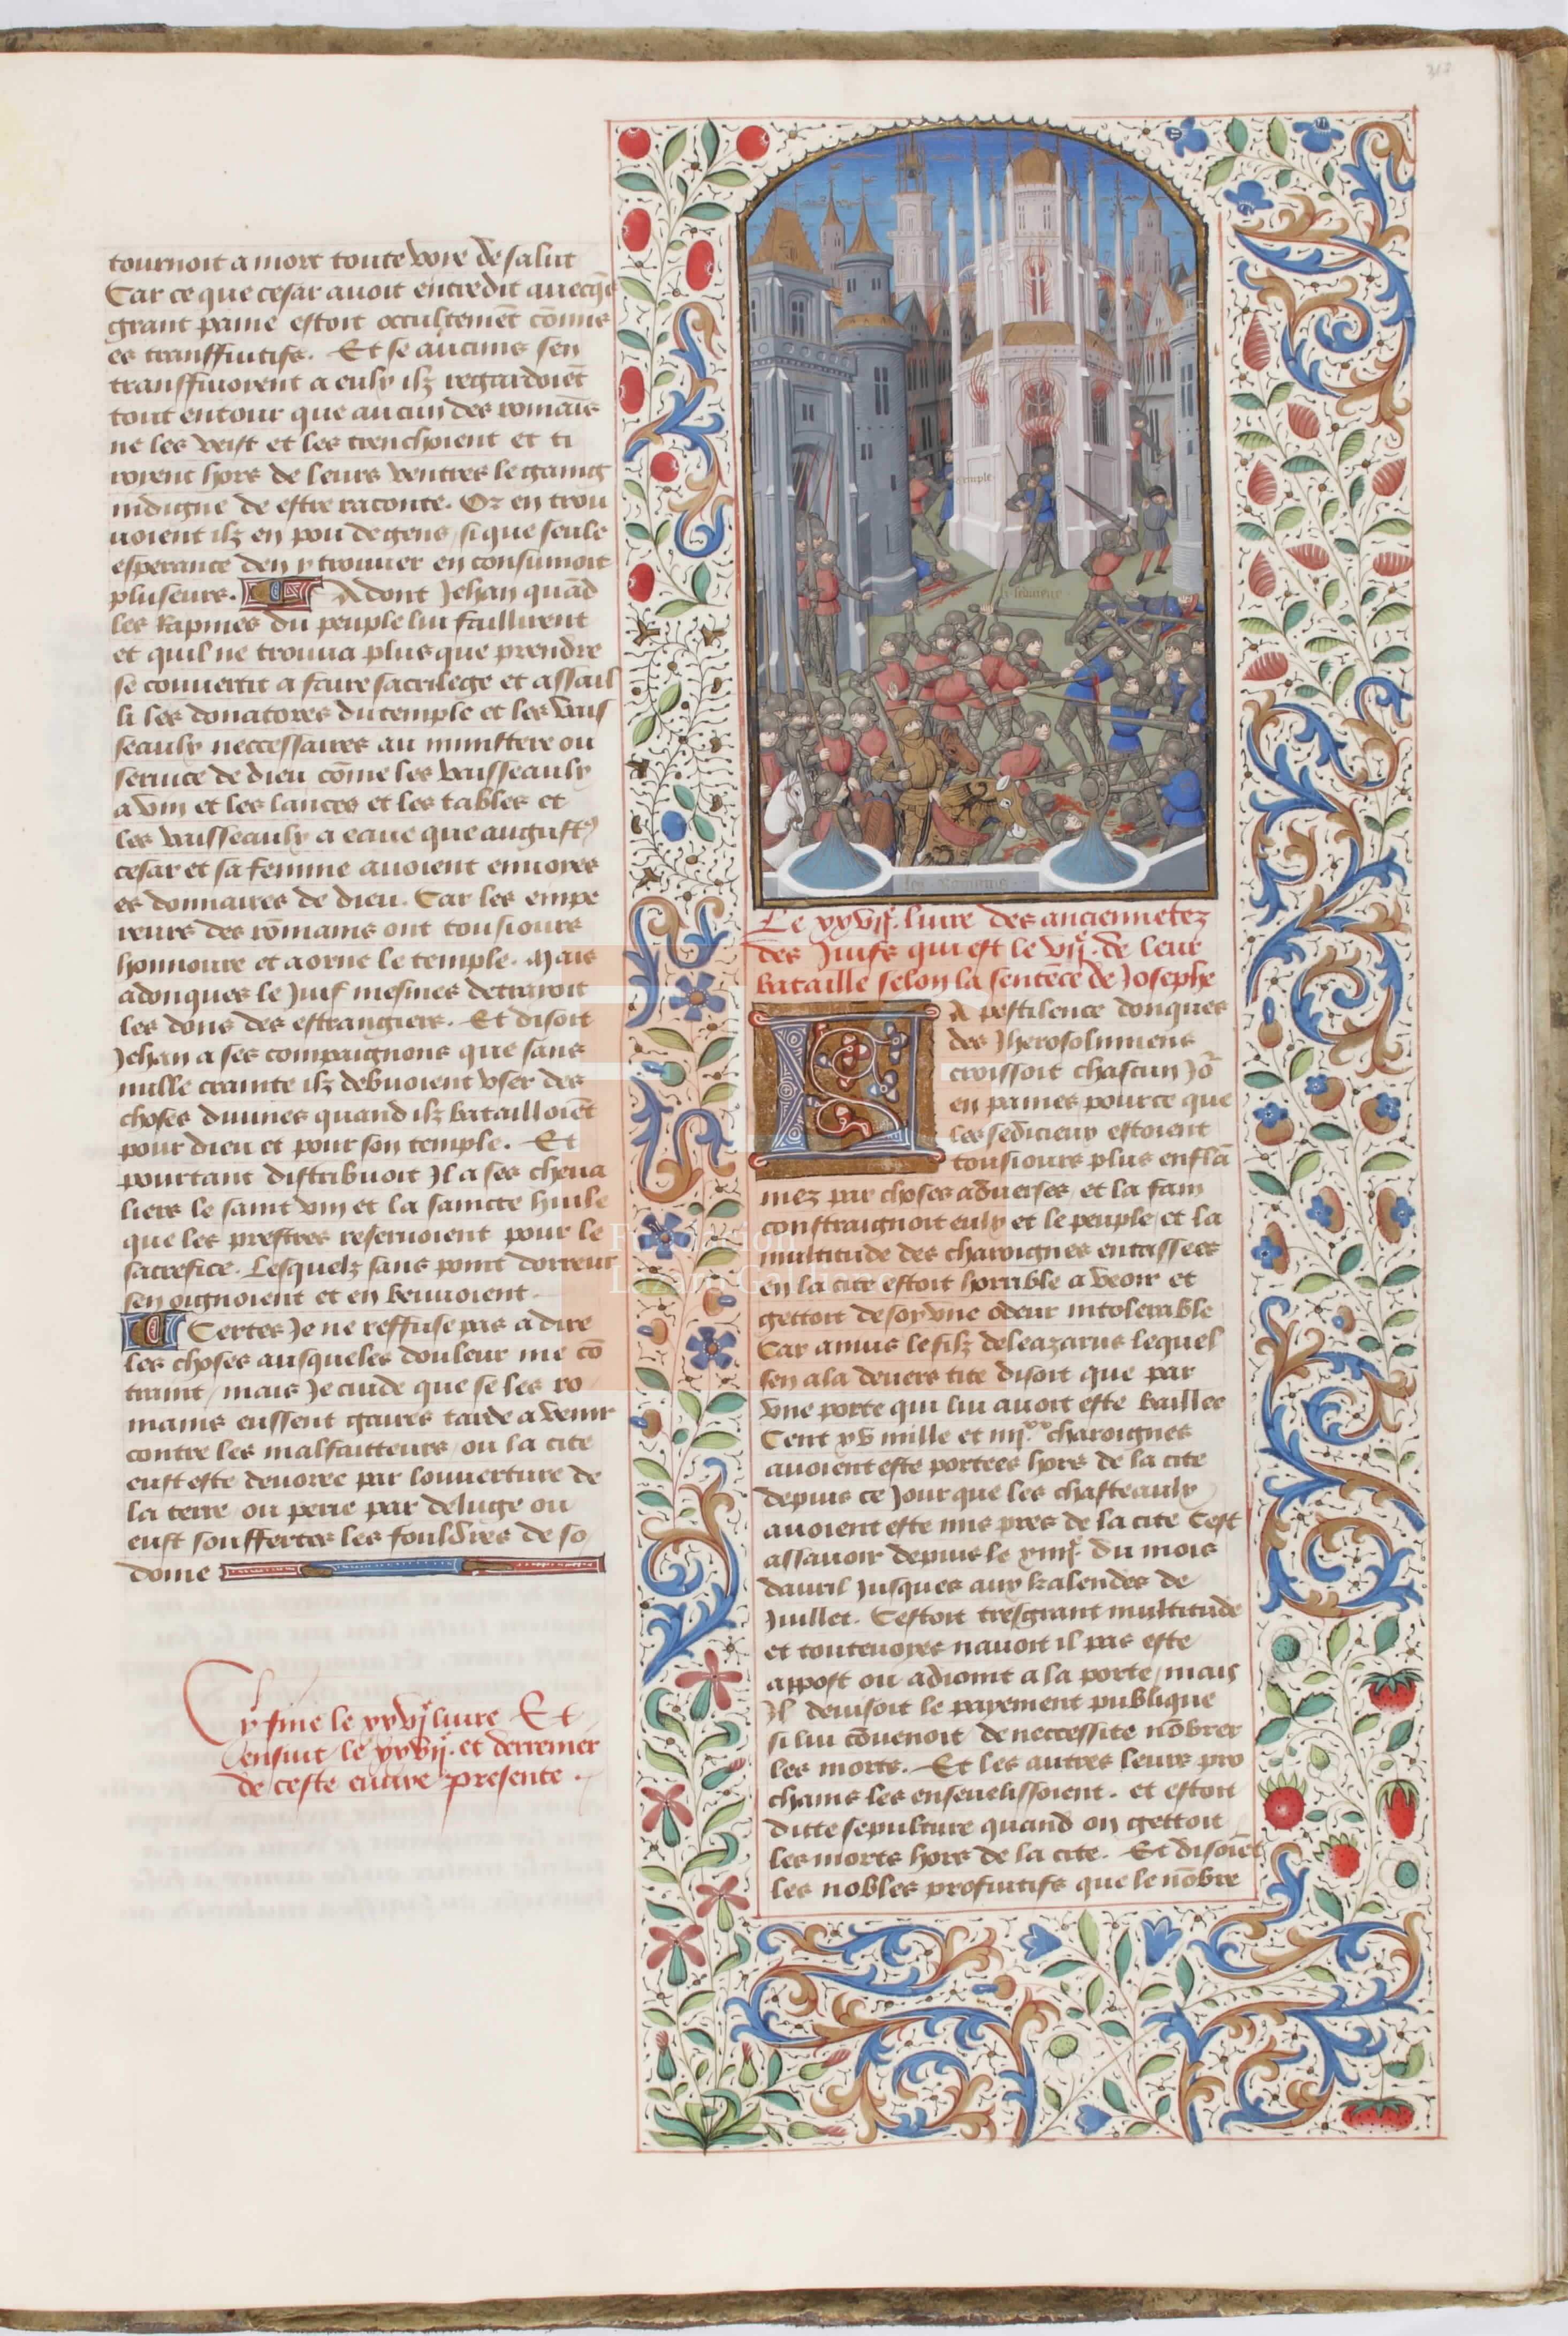 tournoit a mort toute voie de salut
Car ce que cesar auoit entredit auecqs
grant paine estoit occultemēt cōmis
es transfuitifs. Et se aucuns sen
transfuiorent a eulx ilz regardoiēt
tout entour que aucun des romais
ne les veist et les trenchoient et ti
roient hors de leurs ventres le gaing
indigne de estre raconte. Or en trou
uoient ilz en pou de gens, si que seule
esperance den y trouuer en consumoit
pluseurs. Adont Jehan quād
les Rapines du peuple lui faillirent
et quil ne trouua plus que prendre
se conuertit a faire sacrilege et assail
li les donatores du temple et les vais
seaulx neccessaires au ministere ou
seruice de dieu cōme les vaisseaulx
a vin et les lances et les tables et
les vaisseaulx a eaue que august9
cesar et sa femme auoient enuoies
es donnaires de dieu. Car les empe
reurs des rōmains ont tousiours
honnoure et aorne le temple. Mais
adonques le Juif mesmes detraioit
les dons des estrangiers. Et disoit
Jehan a ses compaignons que sans
nulle crainte ilz debuoient vser des
choses diuines quand ilz batailloiēt
pour dieu et pour son temple. Et
pourtant distribuoit Il a ses cheua
liers le saint vin et la saincte huile
que les prestres reseruoient pour le
sacrefice. Lesquelz sans point dorreur
sen oignoient et en beuuoient.
Certes Je ne reffuse pas a dire
les choses ausqueles douleur me cō
traint, mais Je cuide que se les ro
mains eussent gaires tarde a venir
contre les malfaitteurs, ou la cite
eust este deuoree par louuerture de
la terre ou perie par deluge ou
eust souffertes les fouldres de so
dome
Cy fine le xxvj livre Et
ensuit le xxvij. et derrenier
de ceste euure presente.
temple
les Rommains
Le xxvij. liure des anciennetez
des Juifs qui est le vij. de leur
bataille selon la sentēce de Josephe
LA pestilence donques
des Jherosolimiens
croissoit chascun Jo
en paines pource que
les sedicieux estoient
tousiours plus enflā
mez par choses aduerses, et la fain
constraignoit eulx et le peuple, et la
multitude des charoignes entassees
en la cite estoit horrible a veoir et
gettoit de soy vne odeur intolerable
Car anius le filz deleazarus lequel
sen ala deuers tite disoit que par
vne porte qui lui auoit este baillee
Cent xv mille et iiij.xx charoignes
auoient este portees hors de la cite
depuis ce Jour que les chasteaulx
auoient este mis pres de la cite Cest
assauoir depuis le xiiij. du mois
dauril Jusques aux kalendes de
Juillet. Cestoit tresgrant multitude
et toutevoyes nauoit il pas este
appost ou adioint a la porte, mais
Il deuisoit le payement publique
si lui cōuenoit de neccessite nōbrer
les morts. Et les autres leurs pro
chains les enseuelissoient. et estoit
ditte sepulture quand on gettoit
les morts hors de la cite. Et disoiēt
les nobles profuitifs que le nōbre